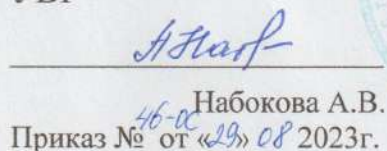 Набокова А.В.
Приказ № 46-ОС от «29» 08 2023г.